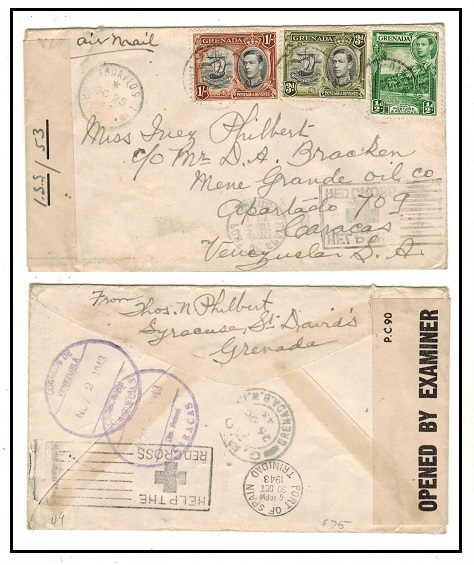 air Mail
GRENADA
1/-
POSTAGE & REVENUE
GRENADA
3d
POSTAGE & REVENUE
½d
½d
133/53
Miss Iney Philbert
c/o Mr D. A. Bracken
Mene Grande oil co
Apartado 709
Caracas
Venezuela S. A.
RED CROSS
HELP THE
From
Thos. N Philbert
Syracuse, St David's
Grenada
P.C 90
OPENED BY EXAMINER
CORREOS DE
VENEZUELA
NOV 2 1943
CARACAS
GRENADA B.W.I.
G.P.O
HELP THE
RED CROSS
PORT OF SPAIN
6 30PM
30 OCT
1943
TRINIDAD
£75